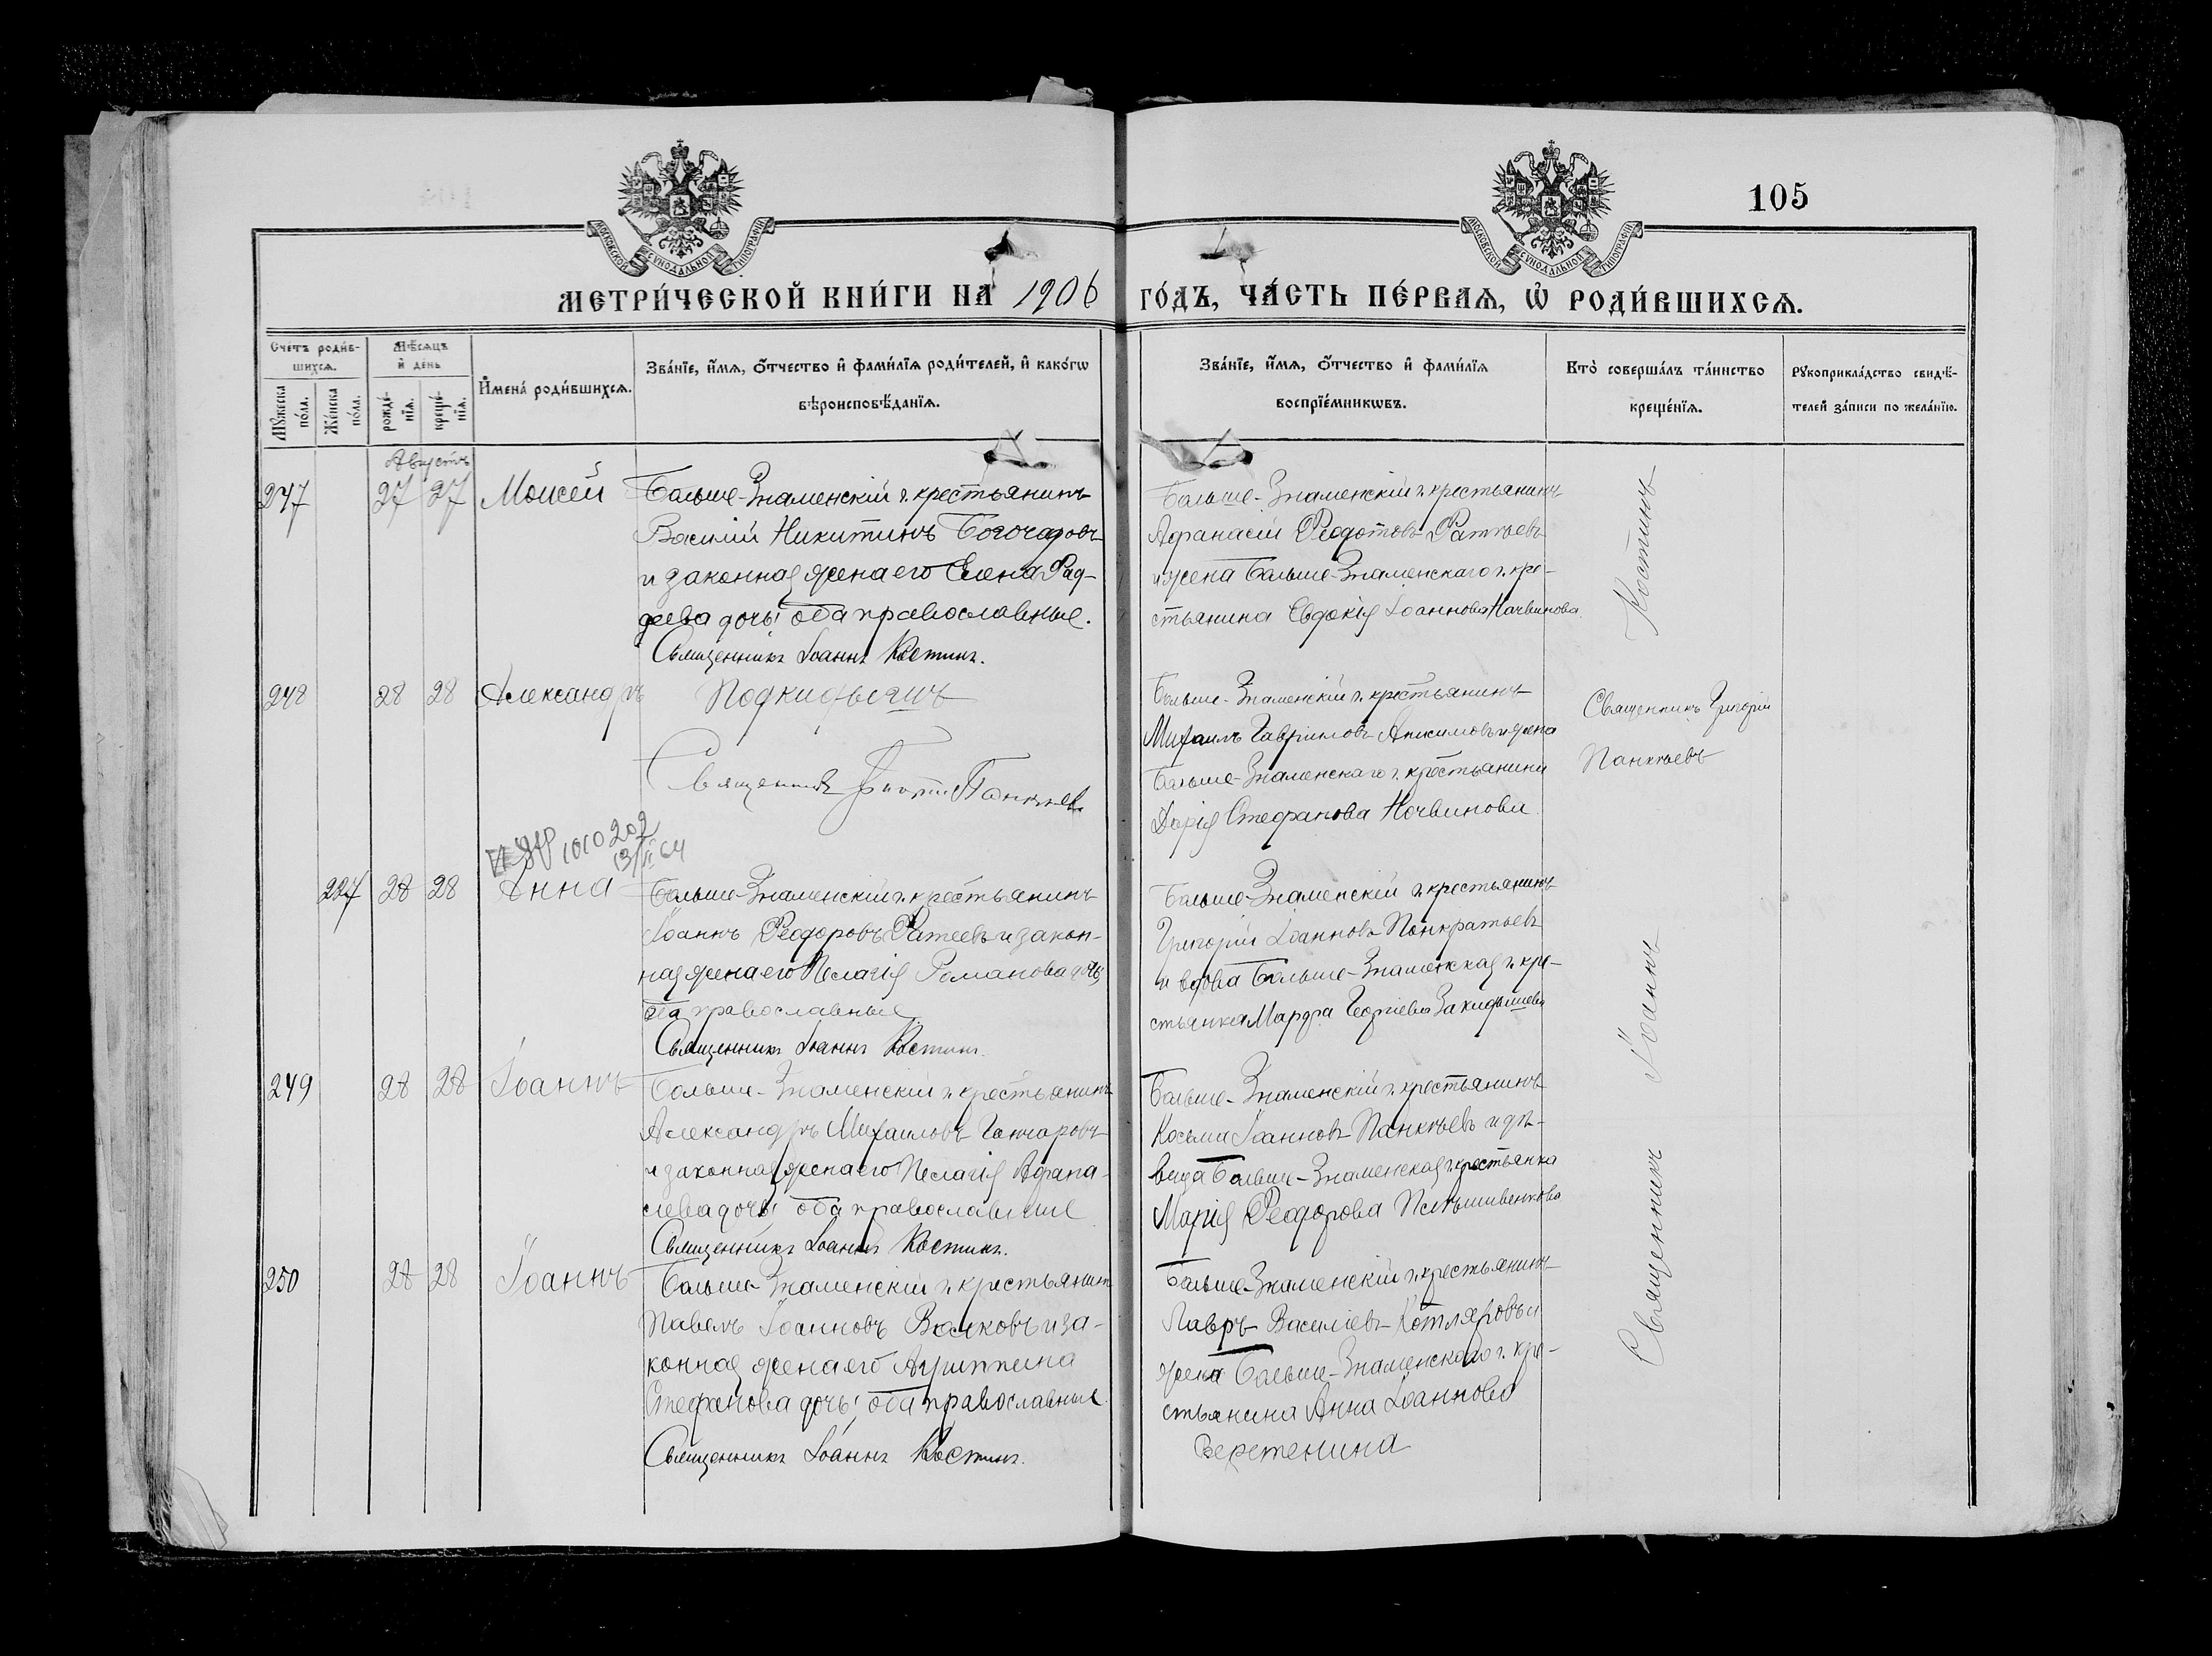 105
МОСКОВСКОЙ СУНОДАЛЬНОЙ ТИПОГРАФІИ
МОСКОВСКОЙ СУНОДАЛЬНОЙ ТИПОГРАФІИ
МЕТРИ́ЧЕСКОЙ КНИ́ГИ НА 1906 ГО́ДЪ, ЧА́СТЬ ПЕ́РВАѦ, Ѡ҆ РОДИ́ВШИХСѦ.
Сче́тъ роди́в-
шихсѧ.
Мꙋ́жеска по́ла.
Же́нска по́ла.
Мѣ́сѧцъ
и҆ де́нь
рожде́-
нїѧ.
креще́-
нїѧ.
И҆мена̀ роди́вшихсѧ.
Зва́нїе, и҆́мѧ, ѻ҆́тчество и҆ фами́лїѧ роди́телей, и҆ како́гѡ
вѣроисповѣ́данїѧ.
Зва́нїе, и҆́мѧ, ѻ҆́тчество и҆ фами́лїѧ
воспрїе́мникѡвъ.
Кто̀ соверша́лъ та́инство
креще́нїѧ.
Рꙋкоприкла́дство свидѣ́-
телей за́писи по жела́нїю.
Августъ
247 27 27 Моисей
Больше-Знаменскій г. крестьянинъ
Василій Никитинъ Богочаровъ
и законная жена его Елена Фад-
деева дочь; оба православные.
Священникъ Іоаннъ Костинъ.
Больше-Знаменскій г. крестьянинъ
Афанасій Ѳеодотовъ Фатѣевъ
и жена Больше-Знаменскаго г. кре-
стьянина Евдокія Іоаннова Начвинова
248 28 28 Александръ
Подкидышъ
Священник Панкѣев
Больше-Знаменскій г. крестьянинъ
Михаилъ Гавриловъ Анисимовъ и жена
Больше-Знаменскаго г. крестьянина
Дарія Стефанова Начвинова
Священникъ Григорій
Панкѣевъ
1010202
13/II 64
227 28 28 Анна
Больше-Знаменскій г. крестьянинъ
Іоаннъ Ѳеодоровъ Фатеевъ и закон-
ная жена его Пелагія Романова дочь;
оба православные
Священникъ Іоаннъ Костинъ.
Больше-Знаменскій г. крестьянинъ
Григорій Іоанновъ Панкратьевъ
и вдова Больше-Знаменская г. кре-
стьянка Марфа Георгіева Закидышева
249 28 28 Іоаннъ
Больше-Знаменскій г. крестьянинъ
Александръ Михаиловъ Ганчаровъ
и законная жена его Пелагія Афана-
сіева дочь; оба православные
Священникъ Іоаннъ Костинъ.
Больше-Знаменскій г. крестьянинъ
Косьма Іоанновъ Панкѣевъ и дѣ-
вица Больше-Знаменская г. крестьянка
Марія Ѳеодорова
250 28 28 Іоаннъ
Больше-Знаменскій г. крестьянинъ
Павелъ Іоанновъ Волковъ и за-
конная жена его Агриппина
Стефанова дочь; оба православные
Священникъ Іоаннъ Костинъ.
Больше-Знаменскій г. крестьянинъ
Лавръ Василіевъ Котляровъ и
жена Больше-Знаменскаго г. кре-
стьянина Анна Іоаннова
Веретенина
Священникъ Іоаннъ Костинъ